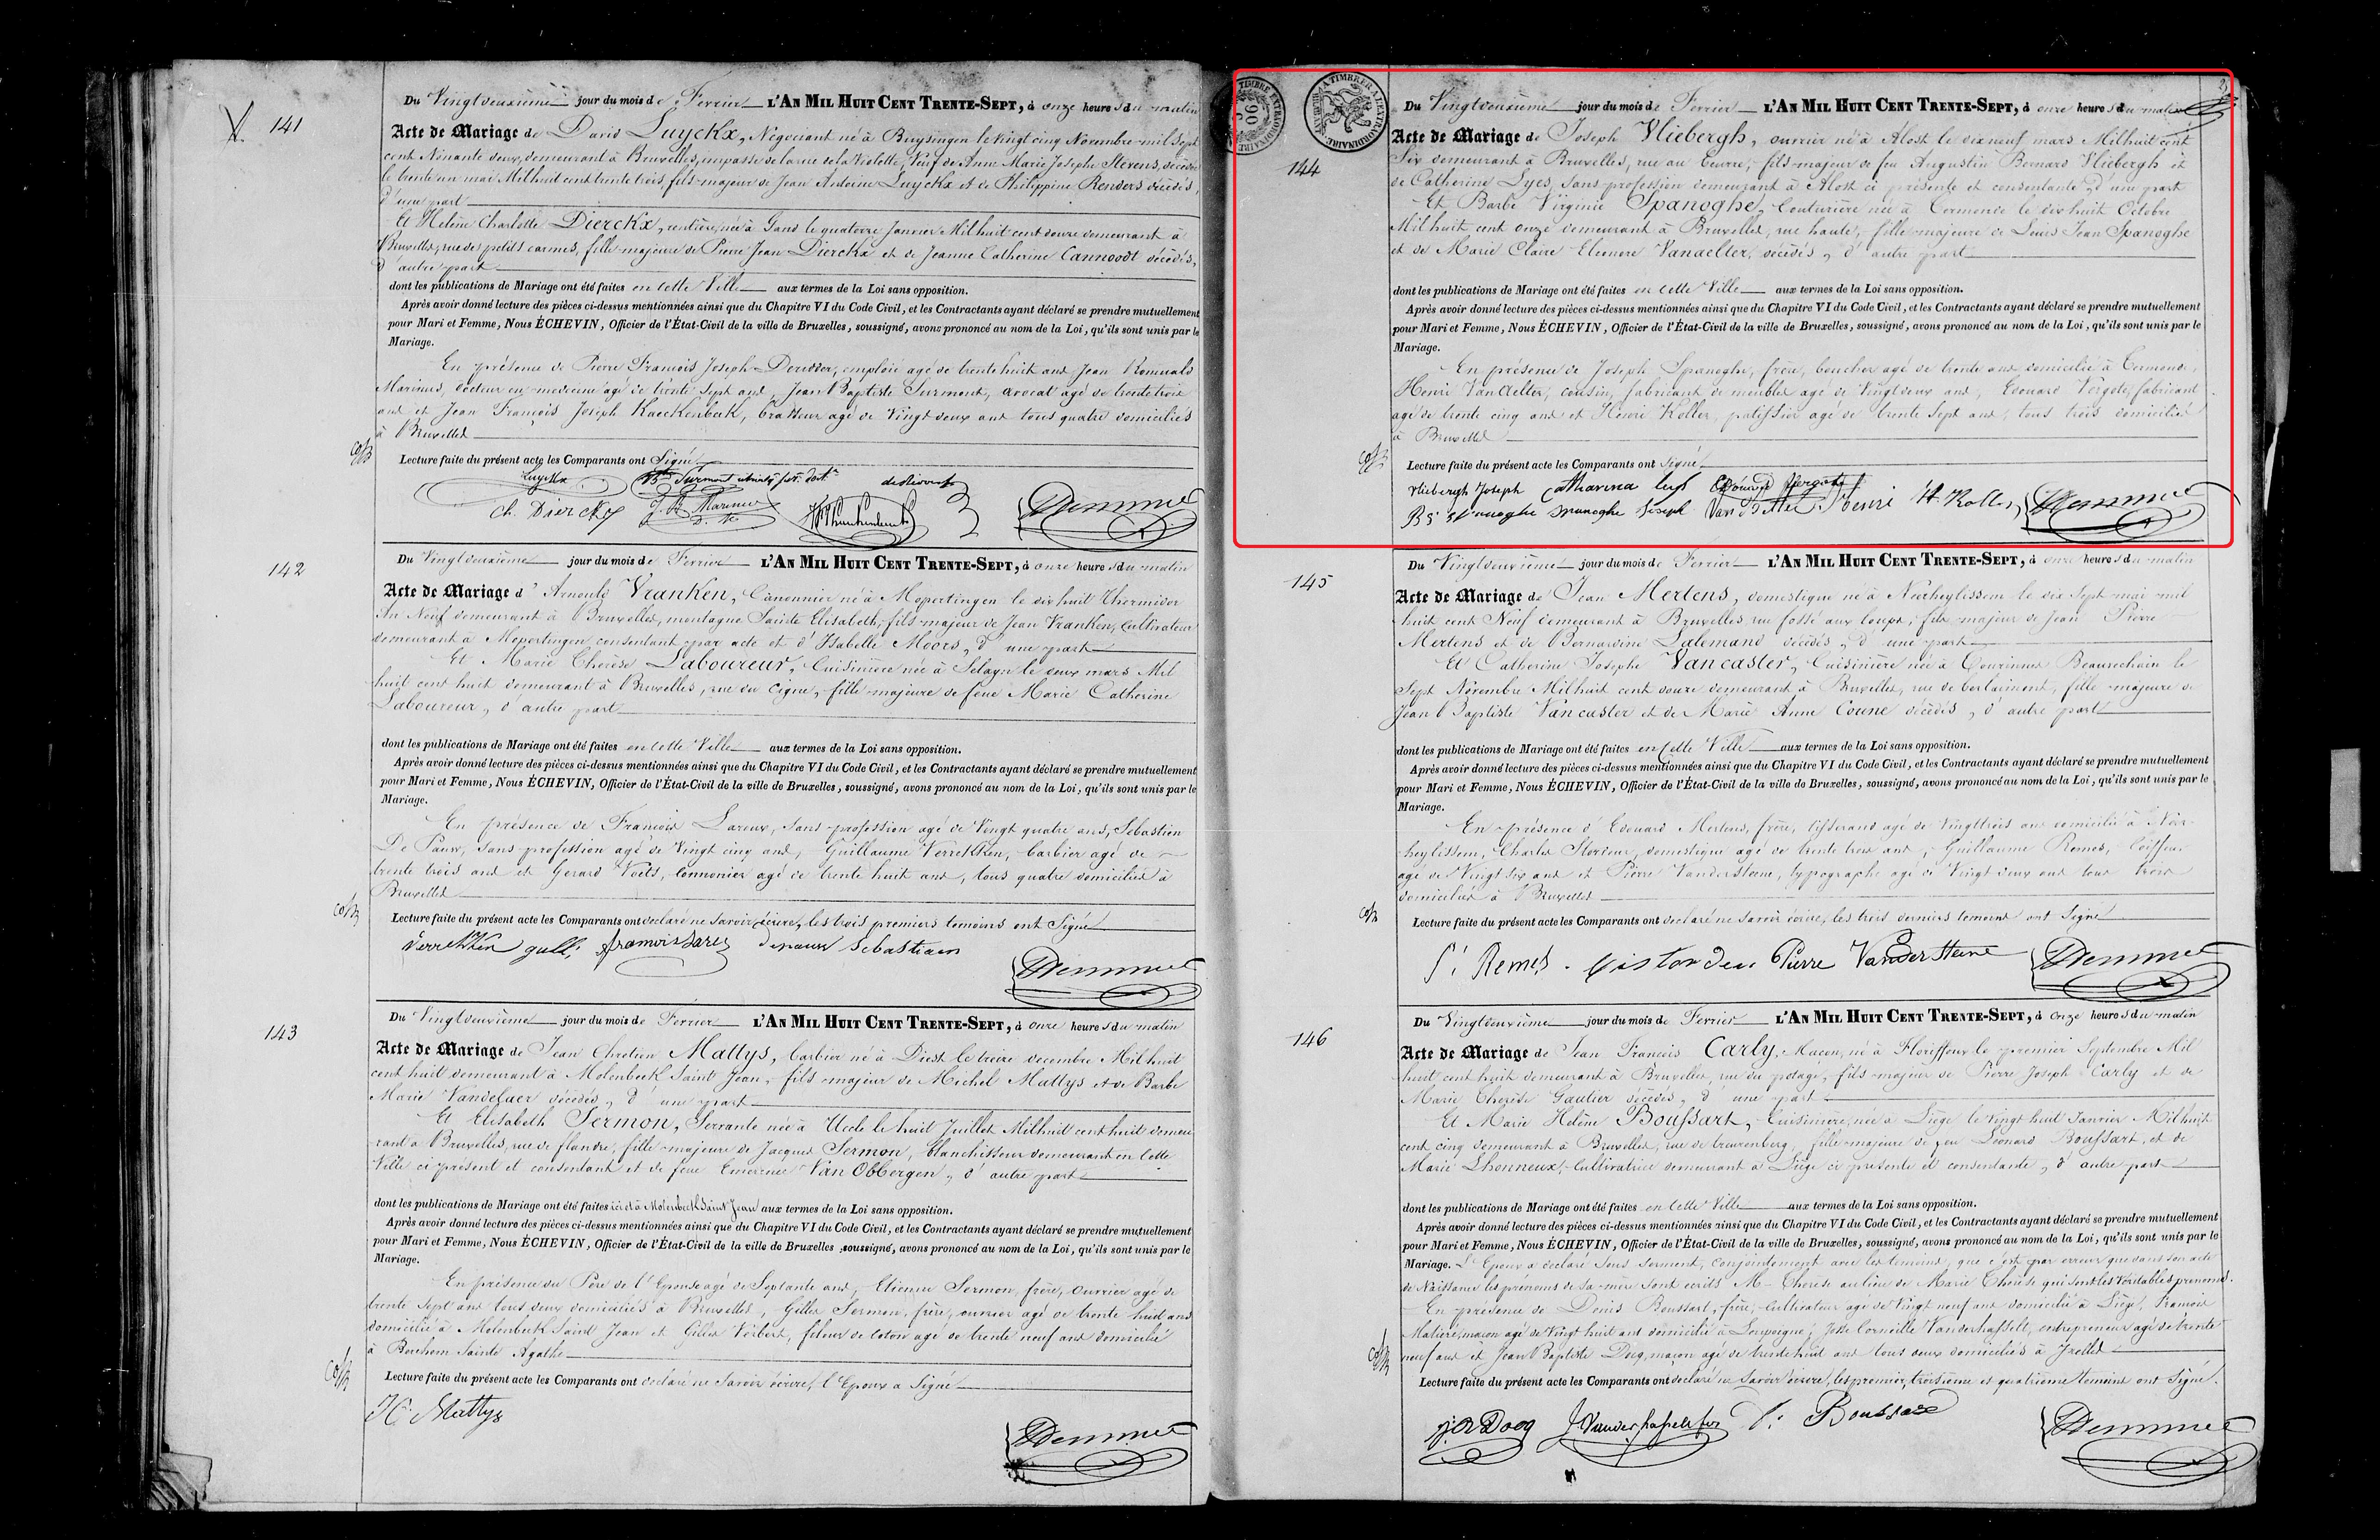 141
Du Vingtdeuxième jour du mois de Fevrier L'AN MIL HUIT CENT TRENTE-SEPT, à onze heures du matin
Acte de Mariage de David Luyckx, Négociant né à Buysingen le vingt cinq Novembre mil sept
cent Nonante deux, demeurant à Bruxelles, impasse de la rue de la Violette, Veuf de Anne Marie Josephe Stevens, décédée
le trente un mai Milhuit cent trente trois, fils majeur de Jean Antoine Luyckx et de Philippine Renders décédés,
d'une part
Et Helène Charlotte Dierckx, rentière, née à Gand le quatorze Janvier Milhuit cent douze demeurant à
Bruxelles, rue des petits carmes, fille majeure de Pierre Jean Dierckx et de Jeanne Catherine Cannoodt décédés,
d'autre part
dont les publications de Mariage ont été faites en cette Ville aux termes de la Loi sans opposition.
Après avoir donné lecture des pièces ci-dessus mentionnées ainsi que du Chapitre VI du Code Civil, et les Contractants ayant déclaré se prendre mutuellement
pour Mari et Femme, Nous ÉCHEVIN, Officier de l'État-Civil de la ville de Bruxelles, soussigné, avons prononcé au nom de la Loi, qu'ils sont unis par le
Mariage.
En présence de Pierre François Joseph Deridder, emploié agé de trente huit ans, Jean Romuald
Marinus, docteur en medecine agé de trente sept ans, Jean Baptiste Surmont, avocat agé de trente trois
ans et Jean François Joseph Kaeckenbeek, brasseur agé de Vingt deux ans tous quatre domiciliés
à Bruxelles
Lecture faite du présent acte les Comparants ont Signé
Luyckx
Ch. Dierckx
142
Du Vingtdeuxième jour du mois de Fevrier L'AN MIL HUIT CENT TRENTE-SEPT, à onze heures du matin
Acte de Mariage d'Arnould Vranken, Canonnier né à Mopertingen le dix huit Thermidor
An Neuf demeurant à Bruxelles, montagne Sainte Elisabeth, fils majeur de Jean Vranken, Cultivateur
demeurant à Mopertingen consentant par acte et d'Isabelle Moors, d'une part
Et Marie Thérèse Laboureur, Cuisinière née à Sclayn le deux mars Mil
huit cent huit demeurant à Bruxelles, rue du Cigne, fille majeure de feue Marie Catherine
Laboureur, d'autre part
dont les publications de Mariage ont été faites en cette Ville aux termes de la Loi sans opposition.
Après avoir donné lecture des pièces ci-dessus mentionnées ainsi que du Chapitre VI du Code Civil, et les Contractants ayant déclaré se prendre mutuellement
pour Mari et Femme, Nous ÉCHEVIN, Officier de l'État-Civil de la ville de Bruxelles, soussigné, avons prononcé au nom de la Loi, qu'ils sont unis par le
Mariage.
En présence de François Lareux, sans profession agé de Vingt quatre ans, Sébastien
De Pauw, sans profession agé de Vingt cinq ans, Guillaume Verrekken, barbier agé de
trente trois ans et Gerard Voets, Cannonier agé de trente huit ans, tous quatre domiciliés à
Bruxelles
Lecture faite du présent acte les Comparants ont declaré ne savoir écrire, les trois premiers temoins ont Signé
Verrekken guill. depauw Sebastiaen
143
Du Vingtdeuxième jour du mois de Fevrier L'AN MIL HUIT CENT TRENTE-SEPT, à onze heures du matin
Acte de Mariage de Jean Chretien Mattys, barbier né à Diest le treize decembre Milhuit
cent huit demeurant à Molenbeek Saint Jean, fils majeur de Michel Mattys et de Barbe
Marie Vandelaer décédés, d'une part
Et Elisabeth Sermon, Servante née à Uccle le huit Juillet Milhuit cent huit demeu
rant à Bruxelles, rue de flandre, fille majeure de Jacques Sermon, blanchisseur demeurant en cette
Ville ci présent et consentant et de feue Emerence Van Obbergen, d'autre part
dont les publications de Mariage ont été faites ici et à Molenbeek Saint Jean aux termes de la Loi sans opposition.
Après avoir donné lecture des pièces ci-dessus mentionnées ainsi que du Chapitre VI du Code Civil, et les Contractants ayant déclaré se prendre mutuellement
pour Mari et Femme, Nous ÉCHEVIN, Officier de l'État-Civil de la ville de Bruxelles, soussigné, avons prononcé au nom de la Loi, qu'ils sont unis par le
Mariage.
En présence du Père de l'Epouse agé de Septante ans, Etienne Sermon, frère, ouvrier agé de
trente sept ans tous deux domiciliés à Bruxelles, Gilles Sermon, frère, ouvrier agé de trente huit ans
domicilié à Molenbeek Saint Jean et Gilles Verbert, fileur de coton agé de trente neuf ans domicilié
à Berchem Sainte Agathe
Lecture faite du présent acte les Comparants ont declaré ne Savoir écrire, l'Epoux a Signé
J C Mattys
144
Du Vingtdeuxième jour du mois de Fevrier L'AN MIL HUIT CENT TRENTE-SEPT, à onze heures du matin
Acte de Mariage de Joseph Vliebergh, ouvrier né à Alost le dix neuf mars Milhuit cent
Six demeurant à Bruxelles, rue au beurre, fils majeur de feu Augustin Bernard Vliebergh et
de Catherine Lyes, sans profession demeurant à Alost ci présente et consentante, d'une part
Et Barbe Virginie Spanoghe, Couturière née à Termonde le dix huit Octobre
Milhuit cent onze demeurant à Bruxelles, rue haute, fille majeure de Louis Jean Spanoghe
et de Marie Claire Eleonore Vanaelter, décédés, d'autre part
dont les publications de Mariage ont été faites en cette Ville aux termes de la Loi sans opposition.
Après avoir donné lecture des pièces ci-dessus mentionnées ainsi que du Chapitre VI du Code Civil, et les Contractants ayant déclaré se prendre mutuellement
pour Mari et Femme, Nous ÉCHEVIN, Officier de l'État-Civil de la ville de Bruxelles, soussigné, avons prononcé au nom de la Loi, qu'ils sont unis par le
Mariage.
En présence de Joseph Spanoghe, frère, boucher agé de trente ans domicilié à Termonde,
Henri Vanaelter, cousin, fabricant de meubles agé de Vingtdeux ans, Edouard Vergote, fabricant
agé de trente cinq ans et Henri Koller, patissier agé de trente sept ans, tous trois domiciliés
à Bruxelles
Lecture faite du présent acte les Comparants ont Signé
Vliebergh Joseph Catharina Edouard Vergote
Spanoghe Spanoghe Joseph Henri
145
Du Vingtdeuxième jour du mois de Fevrier L'AN MIL HUIT CENT TRENTE-SEPT, à onze heures du matin
Acte de Mariage de Jean Mertens, domestique né à Neerheylissem le dix Sept mai mil
huit cent Neuf demeurant à Bruxelles rue fossé aux loups, fils majeur de Jean Pierre
Mertens et de Bernardine Lalemand décédés, d'une part
Et Catherine Josephe Vancaster, Cuisinière née à Tourinnes Beauvechain le
Sept Novembre Milhuit cent douze demeurant à Bruxelles, rue de berlaimont, fille majeure de
Jean Baptiste Vancaster et de Marie Anne Coune décédés, d'autre part
dont les publications de Mariage ont été faites en Cette Ville aux termes de la Loi sans opposition.
Après avoir donné lecture des pièces ci-dessus mentionnées ainsi que du Chapitre VI du Code Civil, et les Contractants ayant déclaré se prendre mutuellement
pour Mari et Femme, Nous ÉCHEVIN, Officier de l'État-Civil de la ville de Bruxelles, soussigné, avons prononcé au nom de la Loi, qu'ils sont unis par le
Mariage.
En présence d'Edouard Mertens, frère, tisserand agé de Vingttrois ans domicilié à Neer-
heylissem, Charles domestique agé de trente trois ans, Guillaume Remes, Coiffeur
agé de Vingt Six ans et Pierre Vandersteene, typographe agé de Vingt deux ans tous trois
domiciliés à Bruxelles
Lecture faite du présent acte les Comparants ont declaré ne Savoir écrire, les trois derniers temoins ont Signé
Remes Pierre Vandersteene
146
Du Vingtdeuxième jour du mois de Fevrier L'AN MIL HUIT CENT TRENTE-SEPT, à onze heures du matin
Acte de Mariage de Jean François Carly, Macon, né à Floriffoux le premier Septembre Mil
huit cent huit demeurant à Bruxelles, rue du potage, fils majeur de Pierre Joseph Carly et de
Marie Therèse Gautier décédés, d'une part
Et Marie Helène Boussart, Cuisinière, née à Liége le Vingt huit Janvier Milhuit
cent cinq demeurant à Bruxelles, rue de treurenberg, fille majeure de feu Léonard Boussart, et de
Marie Lhonneux, Cultivatrice demeurant à Liége ci presente et consentante, d'autre part
dont les publications de Mariage ont été faites en Cette Ville aux termes de la Loi sans opposition.
Après avoir donné lecture des pièces ci-dessus mentionnées ainsi que du Chapitre VI du Code Civil, et les Contractants ayant déclaré se prendre mutuellement
pour Mari et Femme, Nous ÉCHEVIN, Officier de l'État-Civil de la ville de Bruxelles, soussigné, avons prononcé au nom de la Loi, qu'ils sont unis par le
Mariage. L'Epoux a déclaré sous serment, conjointement avec les temoins, que c'est par erreur que dans son acte
de Naissance les prénoms de sa mère sont ecrits M- Therèse au lieu de Marie Therèse qui sont les Véritables prenoms.
En présence de Denis Boussart, frère, Cultivateur agé de Vingt neuf ans domicilié à Liége, François
macon agé de Vingt huit ans domicilié à Loupoigne, Josse Corneille Vanderhasselt, entrepreneur agé de trente
neuf ans et Jean Baptiste Docq, maçon agé de trente huit ans tous deux domiciliés à Ixelles
Lecture faite du présent acte les Comparants ont declaré ne Savoir écrire, les premier, troisième et quatrième temoins ont Signé.
J B Docq D: Boussart